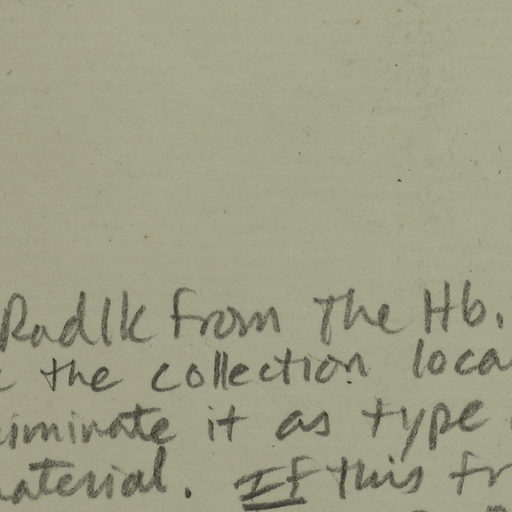 Radlk from the Hb.
the collection loca
iminate it as type
material. If this fr